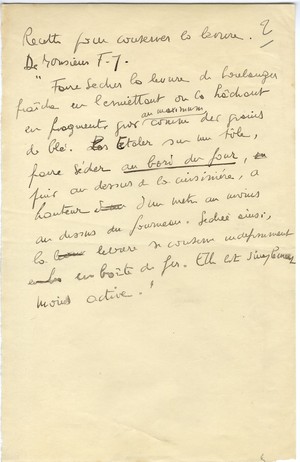 Recette pour conserver la levure. 2
De Monsieur F-J.
"Faire sécher la levure de boulanger
fraîche en l'émiettant ou la hâchant
en fragments gros au maximum comme des grains
de blé. Etaler sur une tôle,
faire sécher au bord du four,
puis au dessus de la cuisinière, à
hauteur d'un mètre au moins
au dessus du fourneau. Séchée ainsi,
la levure se conserve indéfiniment
en boîte de fer. Elle est simplement
moins active."